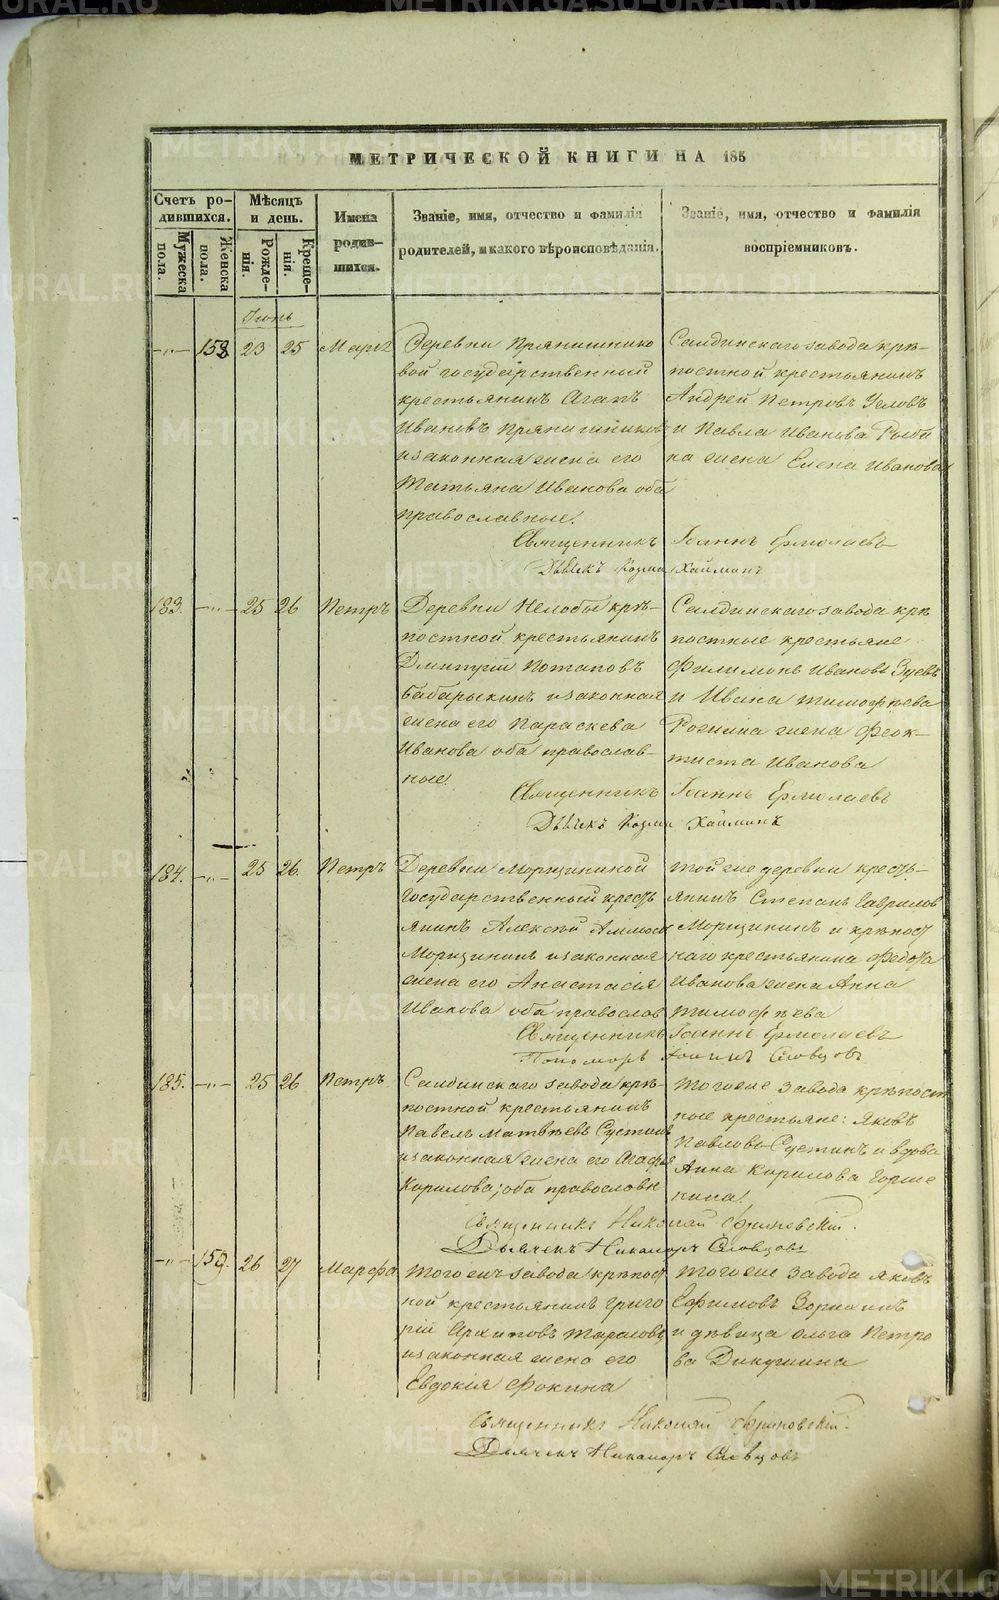 МЕТРИЧЕСКОЙ КНИГИ НА 185
Счетъ ро-
дившихся.
Мужеска
пола.
Женска
пола.
Мѣсяцъ
и день.
Рожде-
нія.
Креще-
нія.
Имена
родив-
шихся.
Званіе, имя, отчество и фамилія
родителей, и какого вѣроисповѣданія.
Званіе, имя, отчество и фамилія
воспріемниковъ.
Іюнь
158 23 25
Деревни Прянишнико
вой государственный
крестьянинъ Агапъ
Ивановъ Прянишниковъ
и законная жена его
Татьяна Иванова оба
православные.
Салдинскаго завода крѣ-
постной крестьянинъ
Андрей Петровъ
и Павла Иванова
на жена Елена Иванова
Священникъ Іоаннъ Ермолаевъ
183. 25 26 Петръ
Деревни Нелобы крѣ-
постной крестьянинъ
Дмитрій Потаповъ
Бабарыкинъ и законная
жена его Параскева
Иванова оба православ-
ные.
Салдинскаго завода крѣ
постные крестьяне
Филимонъ Ивановъ Зуевъ
и Ивана Тимофѣева
жена Феок-
тиста Иванова
Священникъ Іоаннъ Ермолаевъ
184. 25 26. Петръ
Деревни Морщининой
Государственный кресть
янинъ Алексѣй
Морщининъ и законная
жена его Анастасія
Иванова оба православ
Той же деревни кресть-
янинъ Степанъ Гаврилов
Морщининъ и крѣпост
наго крестьянина Федора
Иванова жена Анна
Тимофѣева
Священникъ Іоаннъ Ермолаевъ
Пономарь Словцовъ
185. 25 26 Петръ
Салдинскаго завода крѣ-
постной крестьянинъ
Павелъ Матвѣевъ
и законная жена его Агафья
Кирилова; оба православн
Тогоже завода крѣпост
ные крестьяне: Яковъ
Павловъ и вдова
Анна Кирилова
Священникъ Николай
Дьячекъ Никаноръ Словцовъ
159. 26 27 Марфа
Тогоже завода крѣпост
ной крестьянинъ Григо
рій Архиповъ
и законная жена его
Евдокія Фокина
Тогоже завода Яковъ
Ефимовъ
и дѣвица Ольга Петро
ва Дикушина
Священникъ Николай
Дьячекъ Никаноръ Словцовъ
METRIKI.GASO-URAL.RU